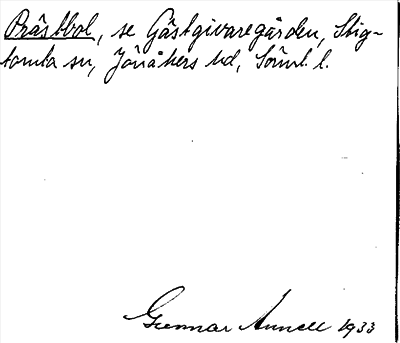 Prästbol, se Gästgivaregården, Stig-
tomta sn, Jönåkers hd, Söml. l.
Gunnar Annell 1933